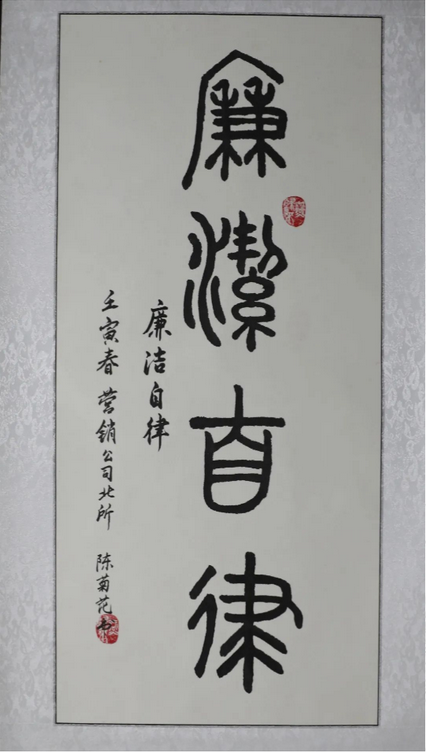 廉潔自律
廉洁自律
壬寅春 营销公司北所 陈菊范书